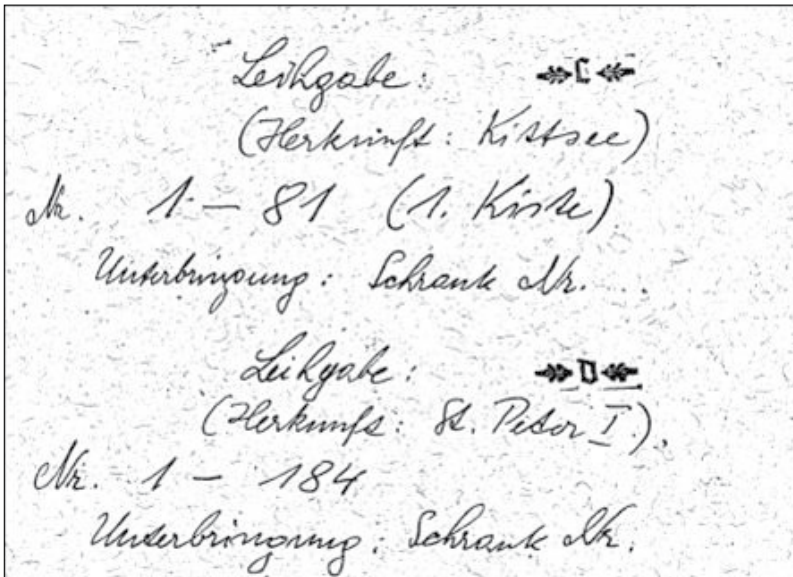 Leihgabe: C
(Herkunft: Kittsee)
Nr. 1 – 81 (1. Kiste)
Unterbringung: Schrank Nr. ...
Leihgabe: D
(Herkunft: St. Peter I).
Nr. 1 – 184
Unterbringung: Schrank Nr.